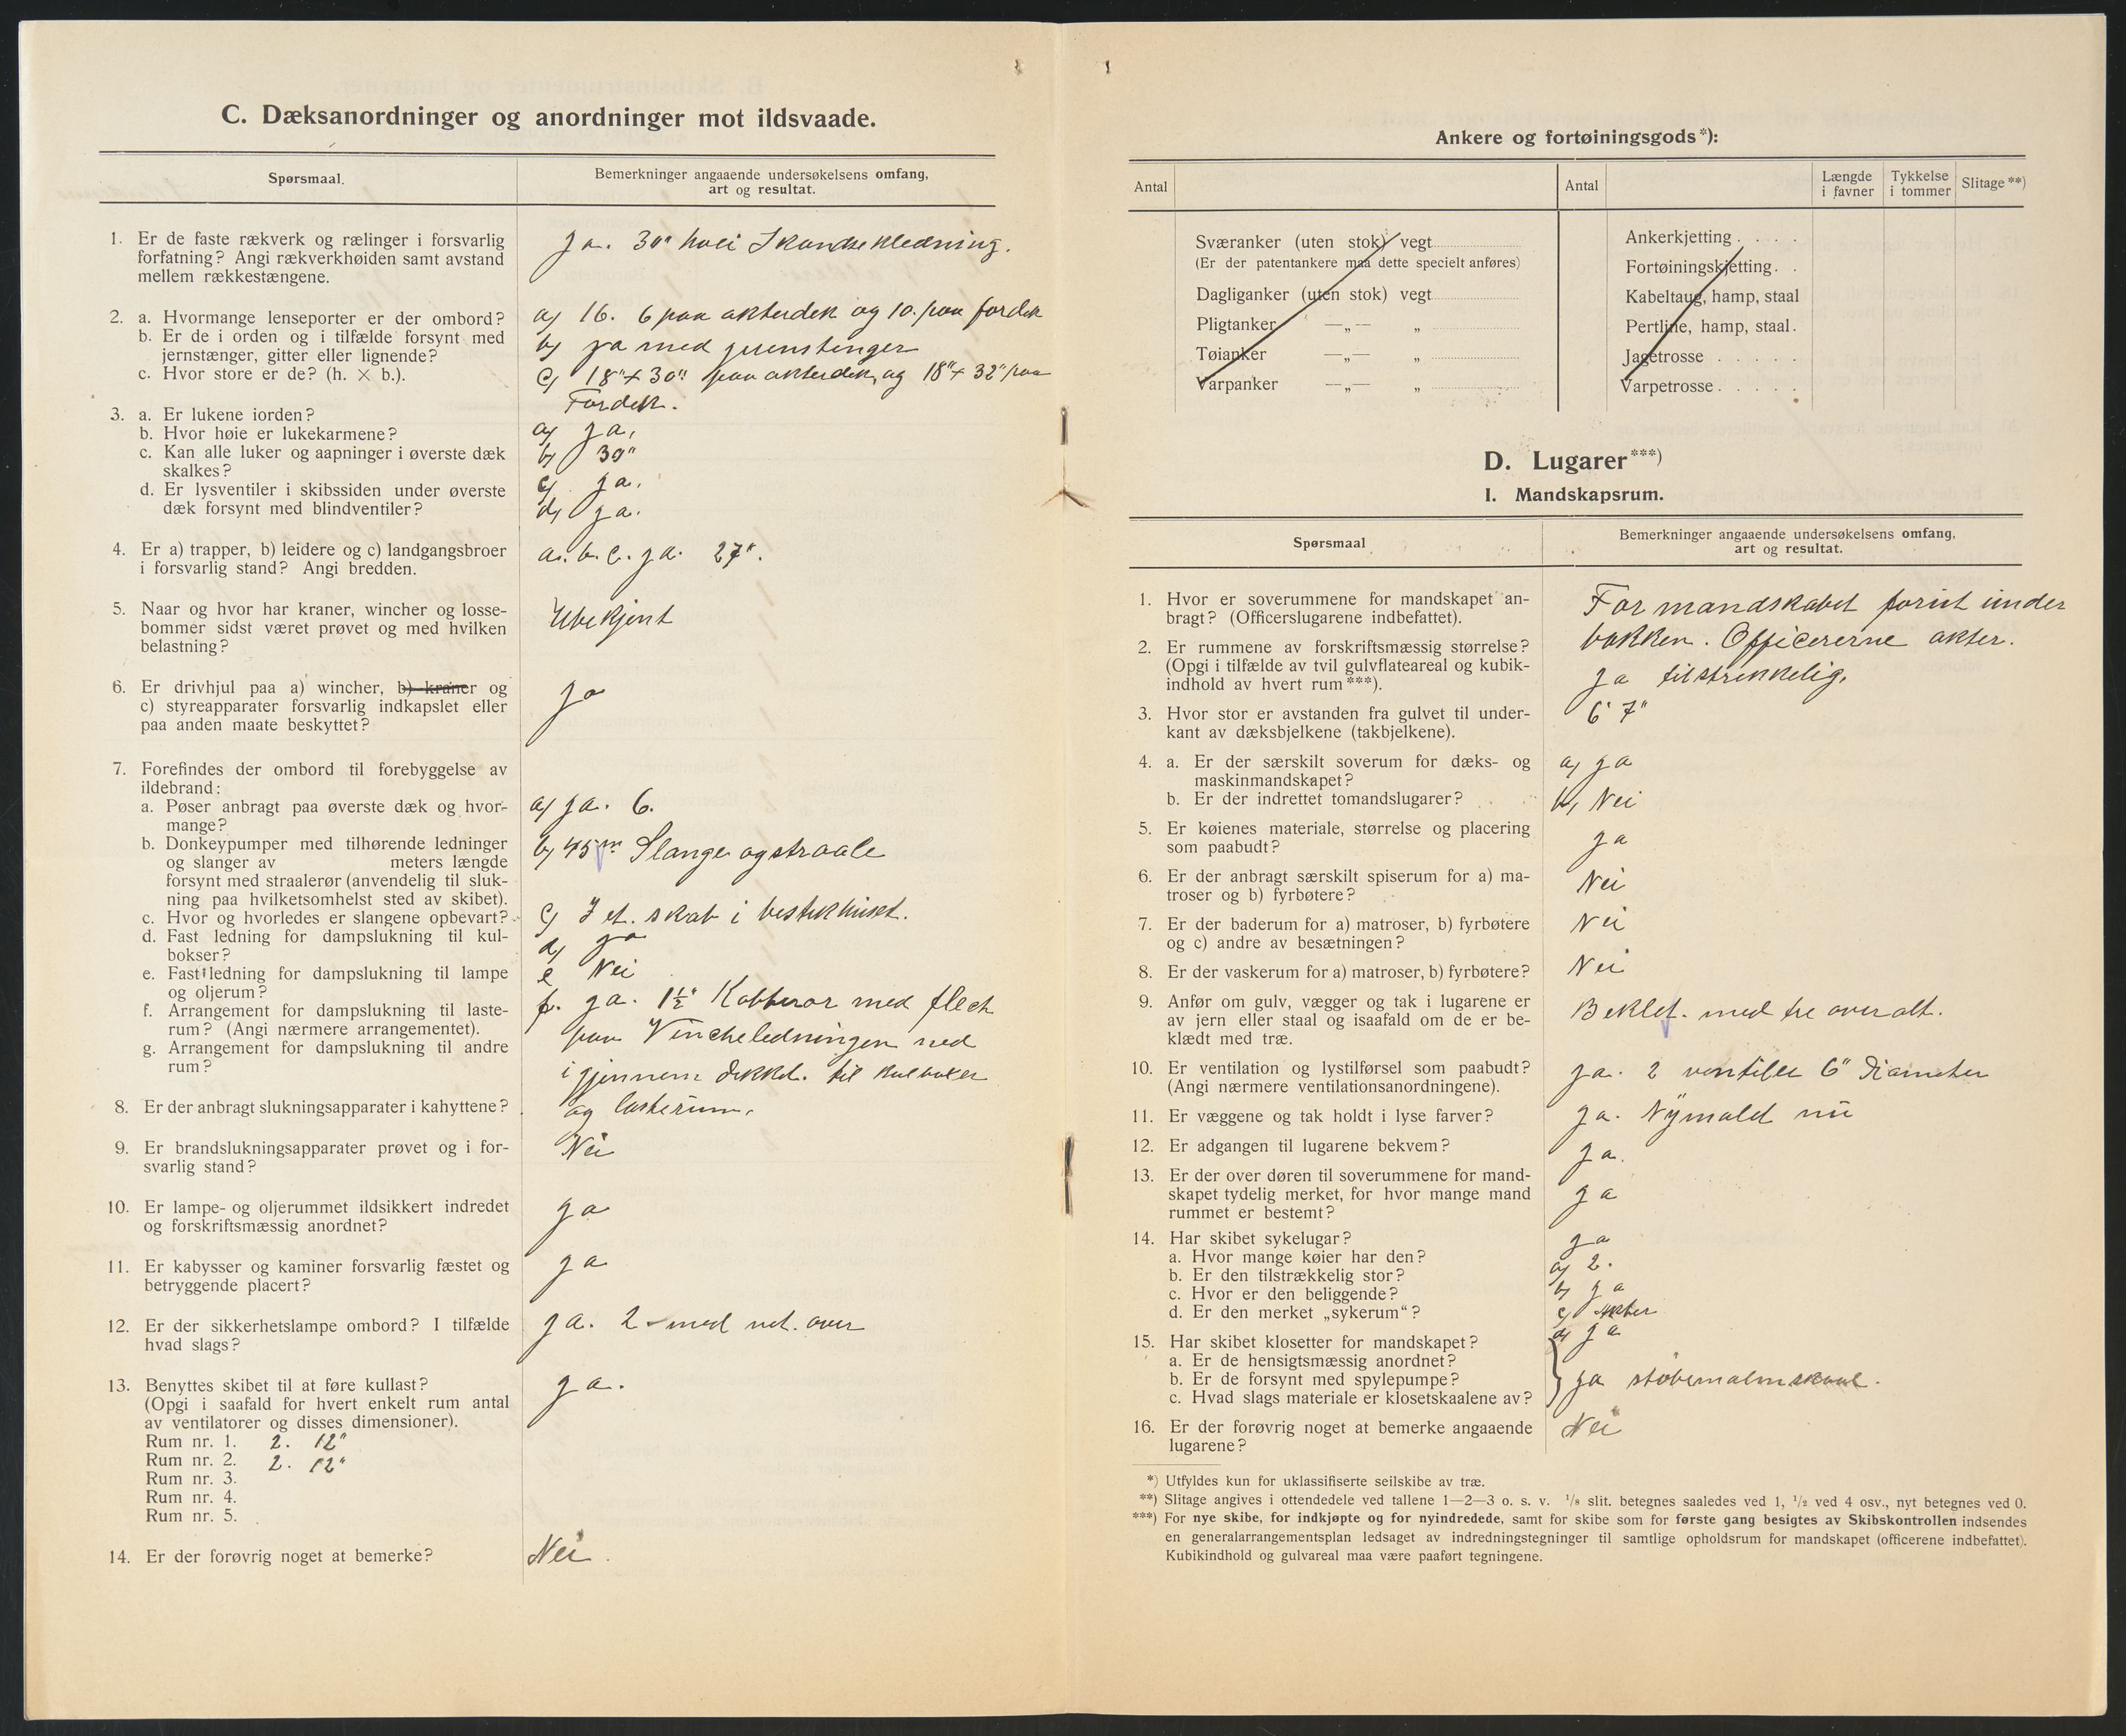 C. Dæksanordninger og anordninger mot ildsvaade.
Spørsmaal.
Bemerkninger angaaende undersøkelsens omfang,
art og resultat.
1. Er de faste rækverk og rælinger i forsvarlig
forfatning? Angi rækverkhøiden samt avstand
mellem rækkestængene.
Ja. 30" høi Skandsekledning.
2. a. Hvormange lenseporter er der ombord?
b. Er de i orden og i tilfælde forsynt med
jernstænger, gitter eller lignende?
c. Hvor store er de? (h. × b.).
a) 16. 6 paa akterdek og 10. paa fordek
b) ja med jernstenger
c) 18"+30" paa akterdek, og 18"+32" paa
Fordek.
3. a. Er lukene iorden?
b. Hvor høie er lukekarmene?
c. Kan alle luker og aapninger i øverste dæk
skalkes?
d. Er lysventiler i skibssiden under øverste
dæk forsynt med blindventiler?
a) ja.
b) 30"
c) ja.
d) ja.
4. Er a) trapper, b) leidere og c) landgangsbroer
i forsvarlig stand? Angi bredden.
a. b. c. ja. 27".
5. Naar og hvor har kraner, wincher og losse-
bommer sidst været prøvet og med hvilken
belastning?
Ubekjent
6. Er drivhjul paa a) wincher, b) kraner og
c) styreapparater forsvarlig indkapslet eller
paa anden maate beskyttet?
ja
7. Forefindes der ombord til forebyggelse av
ildebrand:
a. Pøser anbragt paa øverste dæk og hvor-
mange?
b. Donkeypumper med tilhørende ledninger
og slanger av meters længde
forsynt med straalerør (anvendelig til sluk-
ning paa hvilketsomhelst sted av skibet).
c. Hvor og hvorledes er slangene opbevart?
d. Fast ledning for dampslukning til kul-
bokser?
e. Fast ledning for dampslukning til lampe
og oljerum?
f. Arrangement for dampslukning til laste-
rum? (Angi nærmere arrangementet).
g. Arrangement for dampslukning til andre
rum?
a) ja. 6.
b) 45 m Slange og straale
c) I et. skab i bestikhuset.
d) ja
e Nei
f. ja. 1½" Kobberør med flech
paa Vincheledningen ned
igjennem dekket. til kulboxer
og lasterum.
8. Er der anbragt slukningsapparater i kahyttene?
9. Er brandslukningsapparater prøvet og i for-
svarlig stand?
Nei
10. Er lampe- og oljerummet ildsikkert indredet
og forskriftsmæssig anordnet?
ja
11. Er kabysser og kaminer forsvarlig fæstet og
betryggende placert?
ja
12. Er der sikkerhetslampe ombord? I tilfælde
hvad slags?
ja. 2 - med net. over
13. Benyttes skibet til at føre kullast?
(Opgi i saafald for hvert enkelt rum antal
av ventilatorer og disses dimensioner).
ja.
Rum nr. 1. 2. 12"
Rum nr. 2. 2. 12"
Rum nr. 3.
Rum nr. 4.
Rum nr. 5.
14. Er der forøvrig noget at bemerke?
Nei.
Ankere og fortøiningsgods*):
Antal
Antal
Længde
i favner
Tykkelse
i tommer
Slitage**)
Sværanker (uten stok) vegt
(Er der patentankere maa dette specielt anføres)
Dagliganker (uten stok) vegt
Pligtanker —„— „
Tøianker —„— „
Varpanker —„— „
Ankerkjetting . . . .
Fortøiningskjetting. .
Kabeltaug, hamp, staal
Pertline, hamp, staal.
Jagetrosse . . . . .
Varpetrosse . . . . .
D. Lugarer***)
I. Mandskapsrum.
Spørsmaal
Bemerkninger angaaende undersøkelsens omfang,
art og resultat.
1. Hvor er soverummene for mandskapet an-
bragt? (Officerslugarene indbefattet).
For mandskabet forut under
bakken. Officererne akter.
2. Er rummene av forskriftsmæssig størrelse?
(Opgi i tilfælde av tvil gulvflateareal og kubik-
indhold av hvert rum***).
ja tilstrekkelig.
3. Hvor stor er avstanden fra gulvet til under-
kant av dæksbjelkene (takbjelkene).
6' 7"
4. a. Er der særskilt soverum for dæks- og
maskinmandskapet?
b. Er der indrettet tomandslugarer?
a) ja
b) Nei
5. Er køienes materiale, størrelse og placering
som paabudt?
ja
6. Er der anbragt særskilt spiserum for a) ma-
troser og b) fyrbøtere?
Nei
7. Er der baderum for a) matroser, b) fyrbøtere
og c) andre av besætningen?
Nei
8. Er der vaskerum for a) matroser, b) fyrbøtere?
Nei
9. Anfør om gulv, vægger og tak i lugarene er
av jern eller staal og isaafald om de er be-
klædt med træ.
Beklet. med tre overalt.
10. Er ventilation og lystilførsel som paabudt?
(Angi nærmere ventilationsanordningene).
ja. 2 ventiler 6" Diameter
11. Er væggene og tak holdt i lyse farver?
ja. Nymald nu
12. Er adgangen til lugarene bekvem?
ja.
13. Er der over døren til soverummene for mand-
skapet tydelig merket, for hvor mange mand
rummet er bestemt?
ja
14. Har skibet sykelugar?
a. Hvor mange køier har den?
b. Er den tilstrækkelig stor?
c. Hvor er den beliggende?
d. Er den merket „sykerum"?
ja
a) 2.
b) ja
c) Akter
d) ja
15. Har skibet klosetter for mandskapet?
a. Er de hensigtsmæssig anordnet?
b. Er de forsynt med spylepumpe?
c. Hvad slags materiale er klosetskaalene av?
ja støbemalmskaal.
16. Er der forøvrig noget at bemerke angaaende
lugarene?
Nei
*) Utfyldes kun for uklassifiserte seilskibe av træ.
**) Slitage angives i ottendedele ved tallene 1—2—3 o. s. v. 1/8 slit. betegnes saaledes ved 1, 1/2 ved 4 osv., nyt betegnes ved 0.
***) For nye skibe, for indkjøpte og for nyindredede, samt for skibe som for første gang besigtes av Skibskontrollen indsendes
en generalarrangementsplan ledsaget av indredningstegninger til samtlige opholdsrum for mandskapet (officerene indbefattet).
Kubikindhold og gulvareal maa være paaført tegningene.